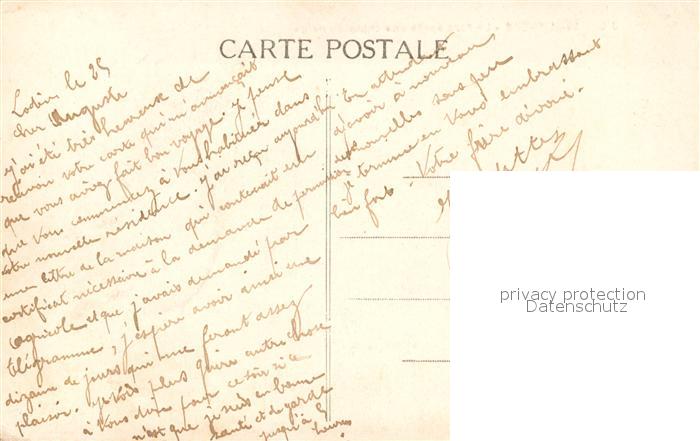 CARTE POSTALE
le 25
Cher Auguste
j'ai été très heureux de
recevoir votre carte qui m'annonçait
que vous aviez fait bon voyage. je pense
que vous commencez à vous habituer dans
votre nouvelle résidence. j'ai reçu aujourd'hui
une lettre de la maison qui contenait un
certificat nécessaire à la demande de permission
agricole et que j'avais demandé par
télégramme; j'espère avoir ainsi une
dizaine de jours qui me feront assez
plaisir. je vois plus guère autre chose
à vous dire pour ce soir si ce
n'est que je suis en bonne
santé et de garde
jusqu'à
heures
En attendant
d'avoir à nouveau
des nouvelles sous peu
je termine en vous embrassant
bien fort. Votre frère dévoué.
privacy protection
Datenschutz